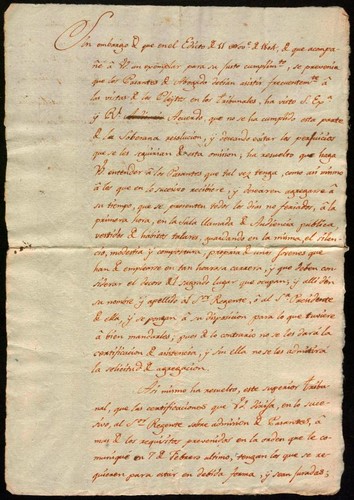 Sin embargo de que en el Edicto de 11 de 1804, de que acompa-
ñé á V. un exemplar para su justo cumplim.to, se prevenia
que los Pasantes de Abogado debian asistir frecuentem.te á
la vista de los Pleytos en los Tribunales, ha visto S. Ex.a
y R.l Acuerdo, que no se ha cumplido esta parte
de la Soberana resolucion, y deseando evitar los perjuicios
que se seguirian de esta omision, ha resuelto que haga
V. entender á los Pasantes que tal vez tenga, como asi mismo
á los que en lo succesivo recibiere, y desearen agregarse á
su tiempo, que se presenten todos los dias no feriados, á la
primera hora, en la Sala llamada de Audiencia publica,
vestidos de habitos talares, guardando en la misma el silen-
cio, modestia y compostura, propia de unos jovenes que
han de emplearse en tan honrosa carrera, y que deben con-
siderar el decoro del segundo lugar que ocupan; y alli den
su nombre, y apellido al S.or Regente, ó al S.or Presidente
de ella, y se pongan á su disposicion para lo que tuviere
á bien mandarles, pues de lo contrario no se les dará la
certificacion de asistencia, y sin ella no se les admitirá
la solicitud de agregacion.
Asi mismo ha resuelto, este superior Tribu-
nal, que las certificaciones que V. dirija, en lo succe-
sivo, al S.or Regente sobre admision de Pasantes, á
mas de los requisitos prevenidos en la orden que le co-
muniqué en 7 de Febrero ultimo, tengan los que se re-
quieren para estar en debida forma, y sean juradas;